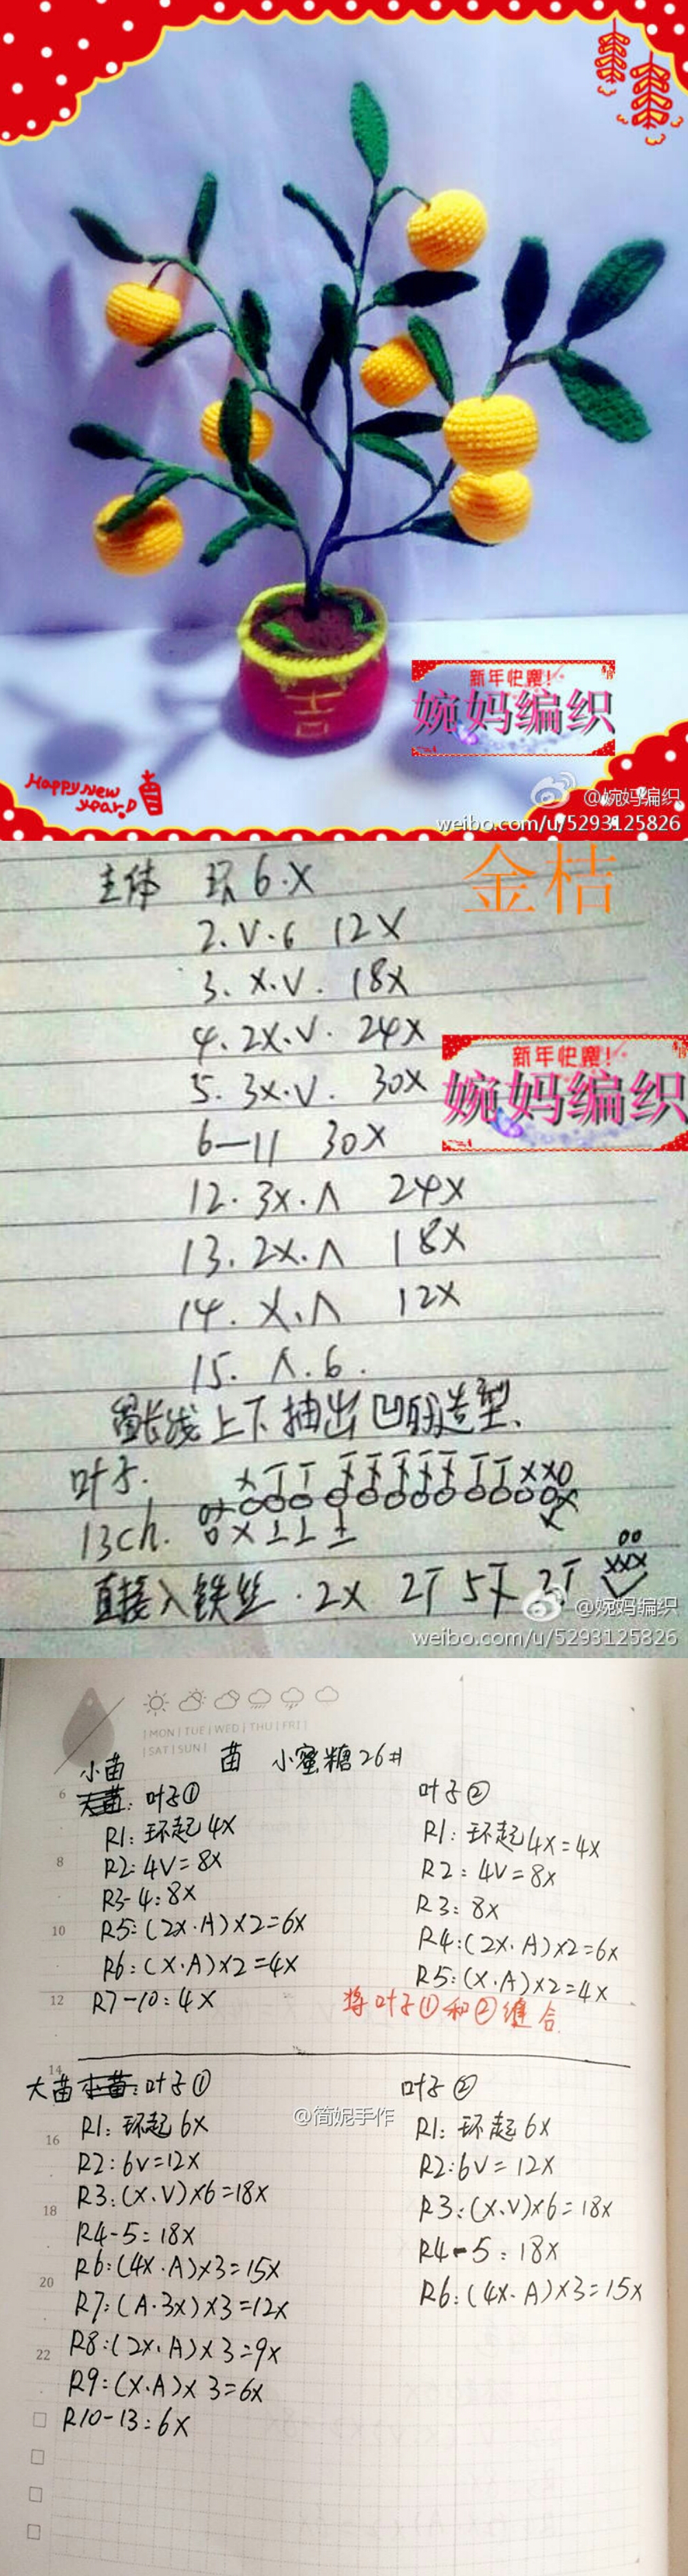 新年快乐!
婉妈编织
Happy New
year.
@婉妈编织
weibo.com/u/5293125826
金桔
主体 环 6.X
2. V.6 12X
3. X.V. 18X
4. 2X.V. 24X
5. 3X.V. 30X
新年快乐!
婉妈编织
6—11 30X
12. 3X.Λ 24X
13. 2X.Λ 18X
14. X.Λ 12X
15. Λ.6.
留长线上下抽出凹的造型.
叶子.
13ch.
直接入铁丝.2X 2T 5T 2T
@婉妈编织
weibo.com/u/5293125826
MON | TUE | WED | THU | FRI
SAT | SUN
苗 小蜜糖26#
小苗
大苗: 叶子①
R1: 环起4X
R2: 4V=8X
R3-4: 8X
R5: (2X.A)×2=6X
R6: (X.A)×2=4X
R7-10: 4X
叶子②
R1: 环起4X=4X
R2: 4V=8X
R3: 8X
R4: (2X.A)×2=6X
R5: (X.A)×2=4X
将叶子①和②缝合
大苗 小苗: 叶子①
R1: 环起6X
R2: 6V=12X
R3: (X.V)×6=18X
R4-5: 18X
R6: (4X.A)×3=15X
R7: (A.3X)×3=12X
R8: (2X.A)×3=9X
R9: (X.A)×3=6X
R10-13: 6X
@简妮手作
叶子②
R1: 环起6X
R2: 6V=12X
R3: (X.V)×6=18X
R4-5: 18X
R6: (4X.A)×3=15X
6
8
10
12
14
16
18
20
22